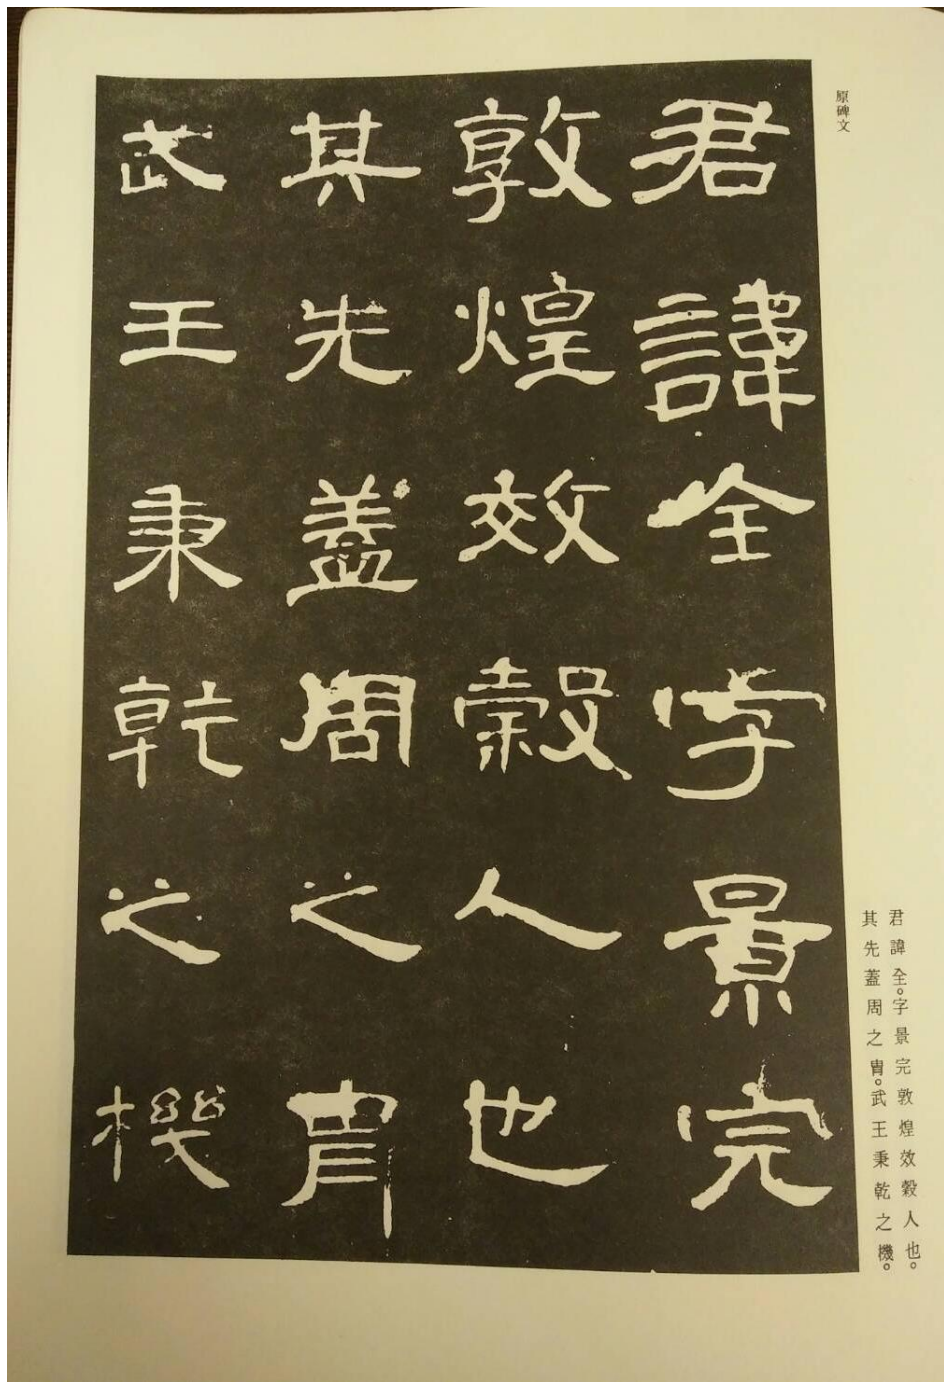 原碑文
君諱全字景完
敦煌效穀人也
其先蓋周之胄
武王秉乾之機
君諱全。字景完敦煌效穀人也。
其先蓋周之胄。武王秉乾之機。